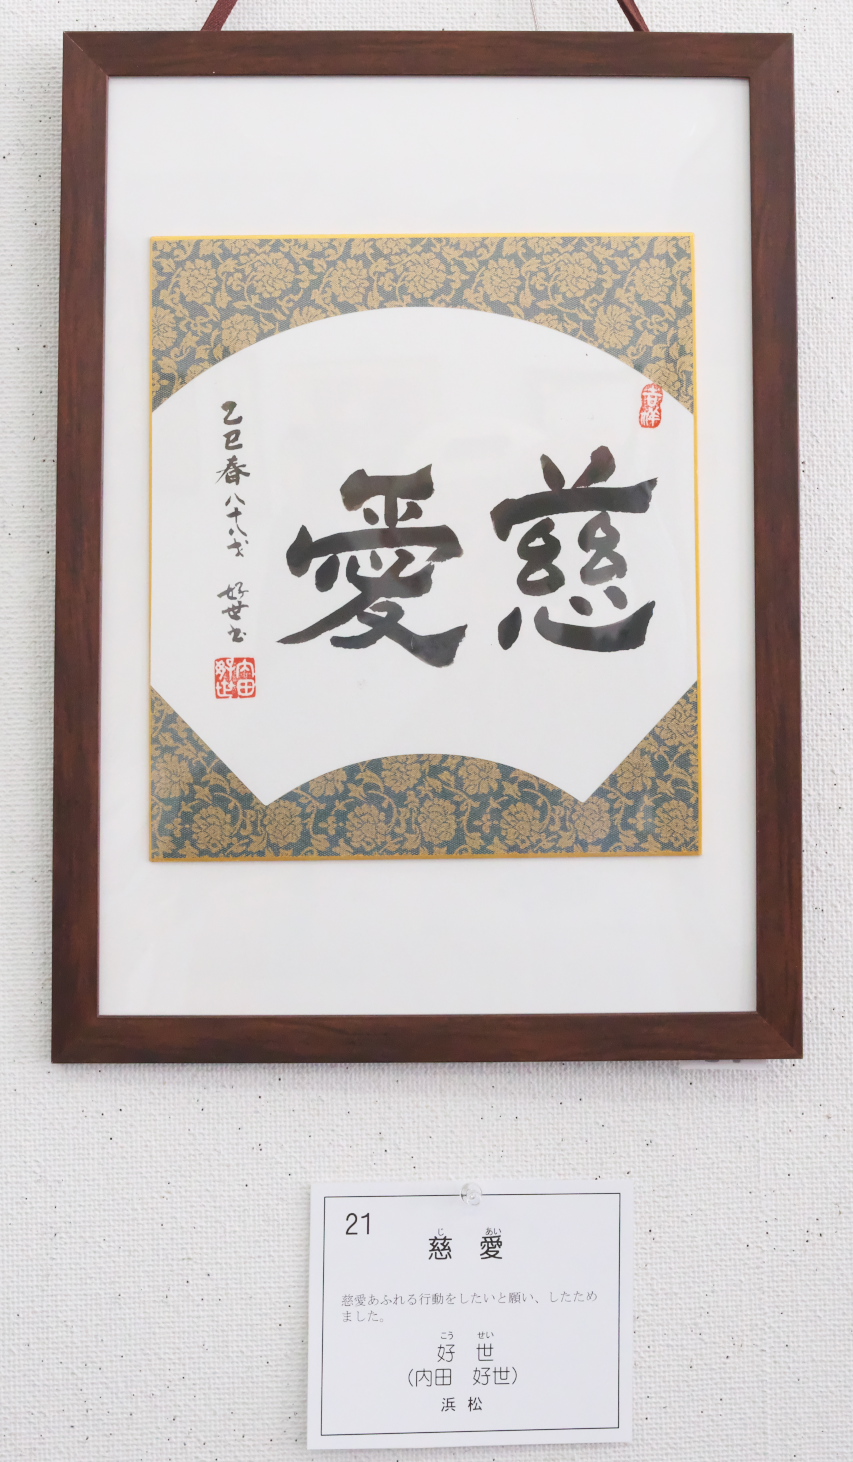 慈愛
乙巳春八十八才 好世書
内田
好世
21
じ あい
慈 愛
慈愛あふれる行動をしたいと願い、したため
ました。
こう せい
好 世
（内田 好世）
浜 松